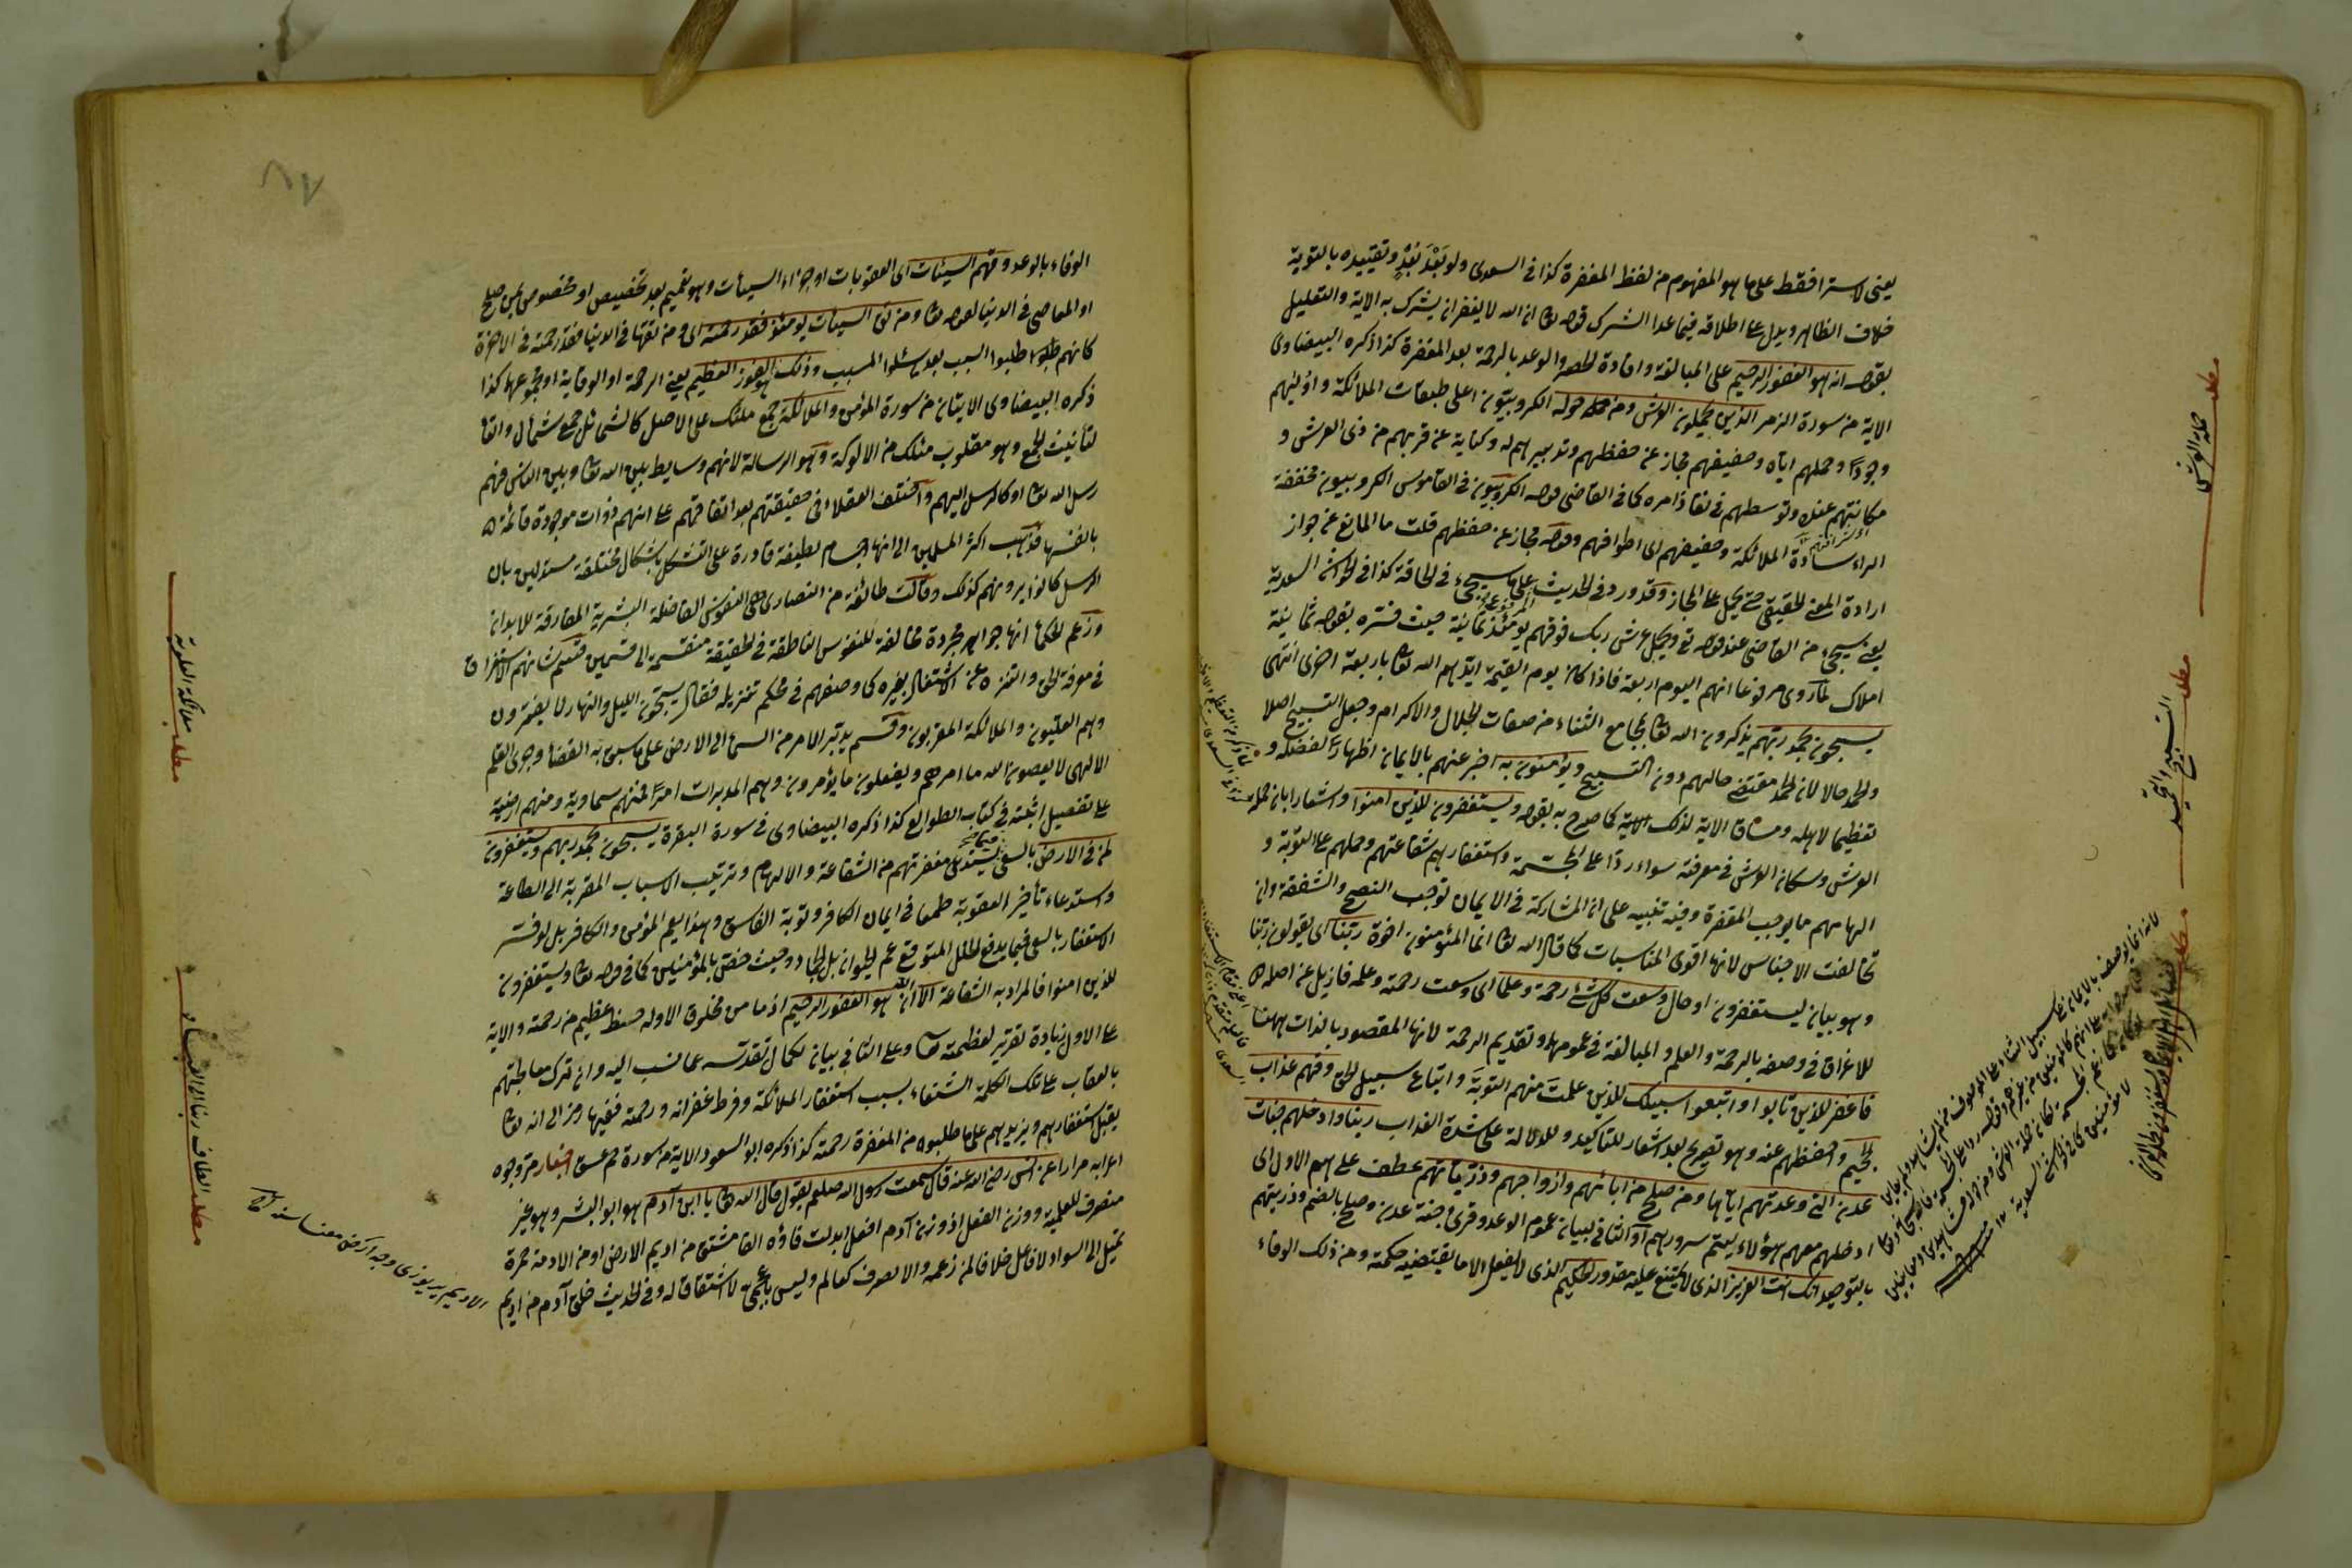 يعنى لاسترا فقط على ما هو المفهوم من لفظ المغفرة كذا فى السعدى ولو بَعْدَ بُعْدٍ وتقييده بالتوبة
خلاف الظاهر ويدل على اطلاقه فيما عدا الشرك قوله تعا ان الله لا يغفر ان يشرك به الاية والتعليل
بقوله انه هو الغفور الرحيم على المبالغة وافادة الحصر والوعد بالرحمة بعد المغفرة كذا ذكره البيضاوى
الاية من سورة الزمر الذين يحملون العرش ومن حوله الكروبيون اعلى طبقات الملائكة واوليهم
وجودًا وحملهم اياه وحفيفهم مجاز عن حفظهم وتدبيرهم له وكناية عن قربهم من ذى العرش و
مكانتهم عنده وتوسطهم فى نفاذ امره كما فى القاضى قوله الكروبيون فى القاموس الكروبيون مخففة
الراء سادة الملائكة وحفيفهم اى اطوافهم وقوله مجاز عن حفظهم قلت ما المانع عن جواز
ارادة المعنى الحقيقى حتى يحمل على المجاز وقد ورد فى الحديث على ما سيجىء فى الحاقة كذا فى الحواشى السعدية
يعنى سيجىء من القاضى عند قوله تع ويحمل عرش ربك فوقهم يومئذ ثمانية حيث فسره بقوله ثمانية
املاك لما روى مرفوعا انهم اليوم اربعة فاذا كان يوم القيمة ايدهم الله تعا باربعة اخرى انتهى
يسبحون بحمد ربهم يذكرون الله تعا بمجامع الثناء من صفات الجلال والاكرام وجعل التسبيح اصلا
والحمد حالا لان الحمد مقتضى حالهم دون التسبيح ويؤمنون به اخبر عنهم بالايمان اظهارا لفضله و
تعظيما لاهله ومساق الاية لذلك كما صرح به بقوله ويستغفرون للذين امنوا واشعارا بان حملة
العرش وسكان الفرش فى معرفته سواء ردّا على المجسّمة واستغفارهم شفاعتهم وحملهم على التوبة و
الهامهم ما يوجب المغفرة وفيه تنبيه على ان المشاركة فى الايمان توجب النصح والشفقة وان
تخالفت الاجناس لانها اقوى المناسبات كما قال الله تعا انما المؤمنون اخوة ربنا اى يقولون ربنا
وهو بيان ليستغفرون او حال وسعت كل شئ رحمة وعلما اى وسعت رحمته وعلمه فازيل عن اصله
للاغراق فى وصفه بالرحمة والعلم والمبالغة فى عمومهما وتقديم الرحمة لانها المقصود بالذات ههنا
فاغفر للذين تابوا واتبعوا سبيلك للذين علمت منهم التوبة واتباع سبيل الحق وقهم عذاب
الجحيم واحفظهم عنه وهو تصريح بعد اشعار للتاكيد وللدلالة على شدة العذاب ربنا وادخلهم جنات
عدن التى وعدتهم اياها ومن صلح من ابائهم وازواجهم وذرياتهم عطف على هم الاول اى
ادخلهم معهم هؤلاء ليتم سرورهم او الثانى لبيان عموم الوعد وقرئ جنة عدن وصلح بالضم وذريتهم
بالتوحيد انك انت العزيز الذى لا يمتنع عليه مقدور الحكيم الذى لا يفعل الا ما يقتضيه حكمته ومن ذلك الوفاء
مطلب حملة العرش
مطلب التسبيح والتحميد
الوفاء بالوعد وقهم السيئات اى العقوبات او جزاء السيئات وهو تعميم بعد تخصيص او تخصوص بمن صلح
او المعاصى فى الدنيا لقوله تعا ومن تق السيئات يومئذ فقد رحمته اى ومن تقها فى الدنيا فقد رحمته فى الاخرة
كانهم طلبوا السبب بعد سئلوا المسبب وذلك هو الفوز العظيم يعنى الرحمة او الوقاية او مجموعهما كذا
ذكره البيضاوى الايتان من سورة المؤمن والملائكة جمع ملئك على الاصل كالشمائل جمع شمأل والتا
لتأنيث الجمع وهو مقلوب مئلك من الالوكة وهو الرسالة لانهم وسايط بين الله تعا وبين الناس فهم
رسل الله تعا او كالرسل اليهم واختلف العقلاء فى حقيقتهم بعد اتفاقهم على انهم ذوات موجودة قائمة
بانفسها فذهب اكثر المسلمين الى انها اجسام لطيفة قادرة على التشكل باشكال مختلفة مستدلين بان
الرسل كانوا يرونهم كذلك وقالت طائفة من النصارى هى النفوس الفاضلة البشرية المفارقة للابدان
وزعم الحكما انها جواهر مجردة مخالفة للنفوس الناطقة فى الحقيقة منقسمة الى قسمين قسم شانهم الاستغراق
فى معرفة الحق والتنزه عن الاشتغال بغيره كما وصفهم فى محكم تنزيله فقال يسبحون الليل والنهار لا يفترون
وهم العليون والملائكة المقربون وقسم يدبر الامر من السما الى الارض على ما سبق به القضا وجرى القلم
الالهى لا يعصون الله ما امرهم ويفعلون ما يؤمرون وهم المدبرات امرا فمنهم سماوية ومنهم ارضية
على تفصيل اثبته فى كتاب الطوالع كذا ذكره البيضاوى فى سورة البقرة يسبحون بحمد ربهم ويستغفرون
لمن فى الارض بالسعى فيما يستدعى مغفرتهم من الشفاعة والالهام وترتيب الاسباب المقربة الى الطاعة
واستدعاء تأخير العقوبة طمعا فى ايمان الكافر وتوبة الفاسق وهذا يعم المؤمن والكافر بل لو فسر
الاستغفار بالسعى فيما يدفع الخلل المتوقع عم الحيوان بل الجماد وحيث خص بالمؤمنين كما فى قوله تعا ويستغفرون
للذين امنوا فالمراد به الشفاعة الا ان الله هو الغفور الرحيم اذ ما من مخلوق الا وله حظ عظيم من رحمته والاية
على الاول زيادة تقرير لعظمته تعا وعلى الثانى بيان لكمال تقدسه عما نسب اليه وان ترك معاجلتهم
بالعقاب على تلك الكلمة الشنعاء بسبب استغفار الملائكة وفرط غفرانه ورحمته ففيها رمز الى انه تعا
يقبل استغفارهم ويزيدهم على ما طلبوه من المغفرة رحمته كذا ذكره ابو السعود الاية من سورة حم عسق اخبار مر وجوه
اعرابه مرارا عن انس رضى الله عنه قال سمعت رسول الله صلعم يقول قال الله تعا يا ابن آدم هو ابو البشر وهو غير
منصرف للعلمية ووزن الفعل اذ وزن آدم افعل ابدلت فاؤه الفا مشتق من اديم الارض او من الادمة حمرة
تميل الى السواد لا فاعل خلافا لمن زعمه والا لصرف كعالم وليس باعجمى لا اشتقاقا له وفى الحديث خلق آدم من اديم
مطلب ملائكة العلوية